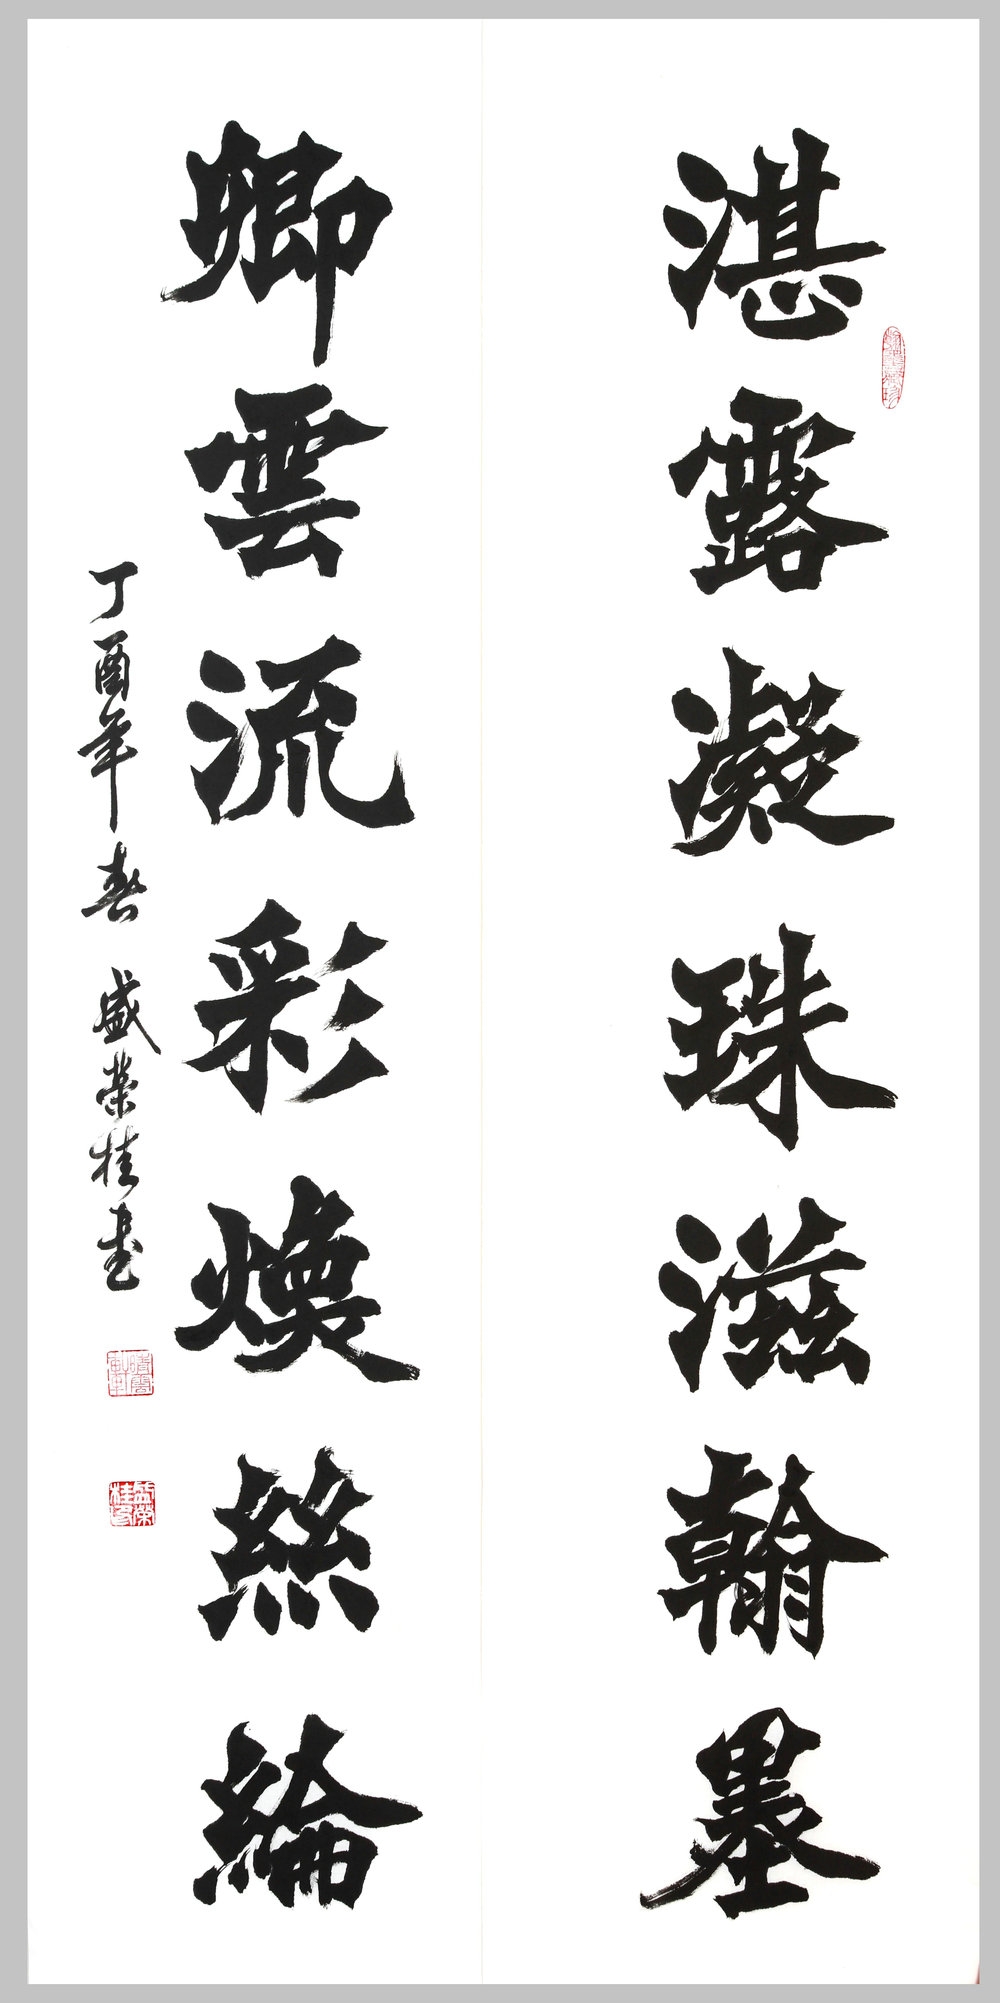 湛露凝珠滋翰墨
卿雲流彩煥絲綸
丁酉年春 盛荣桂书